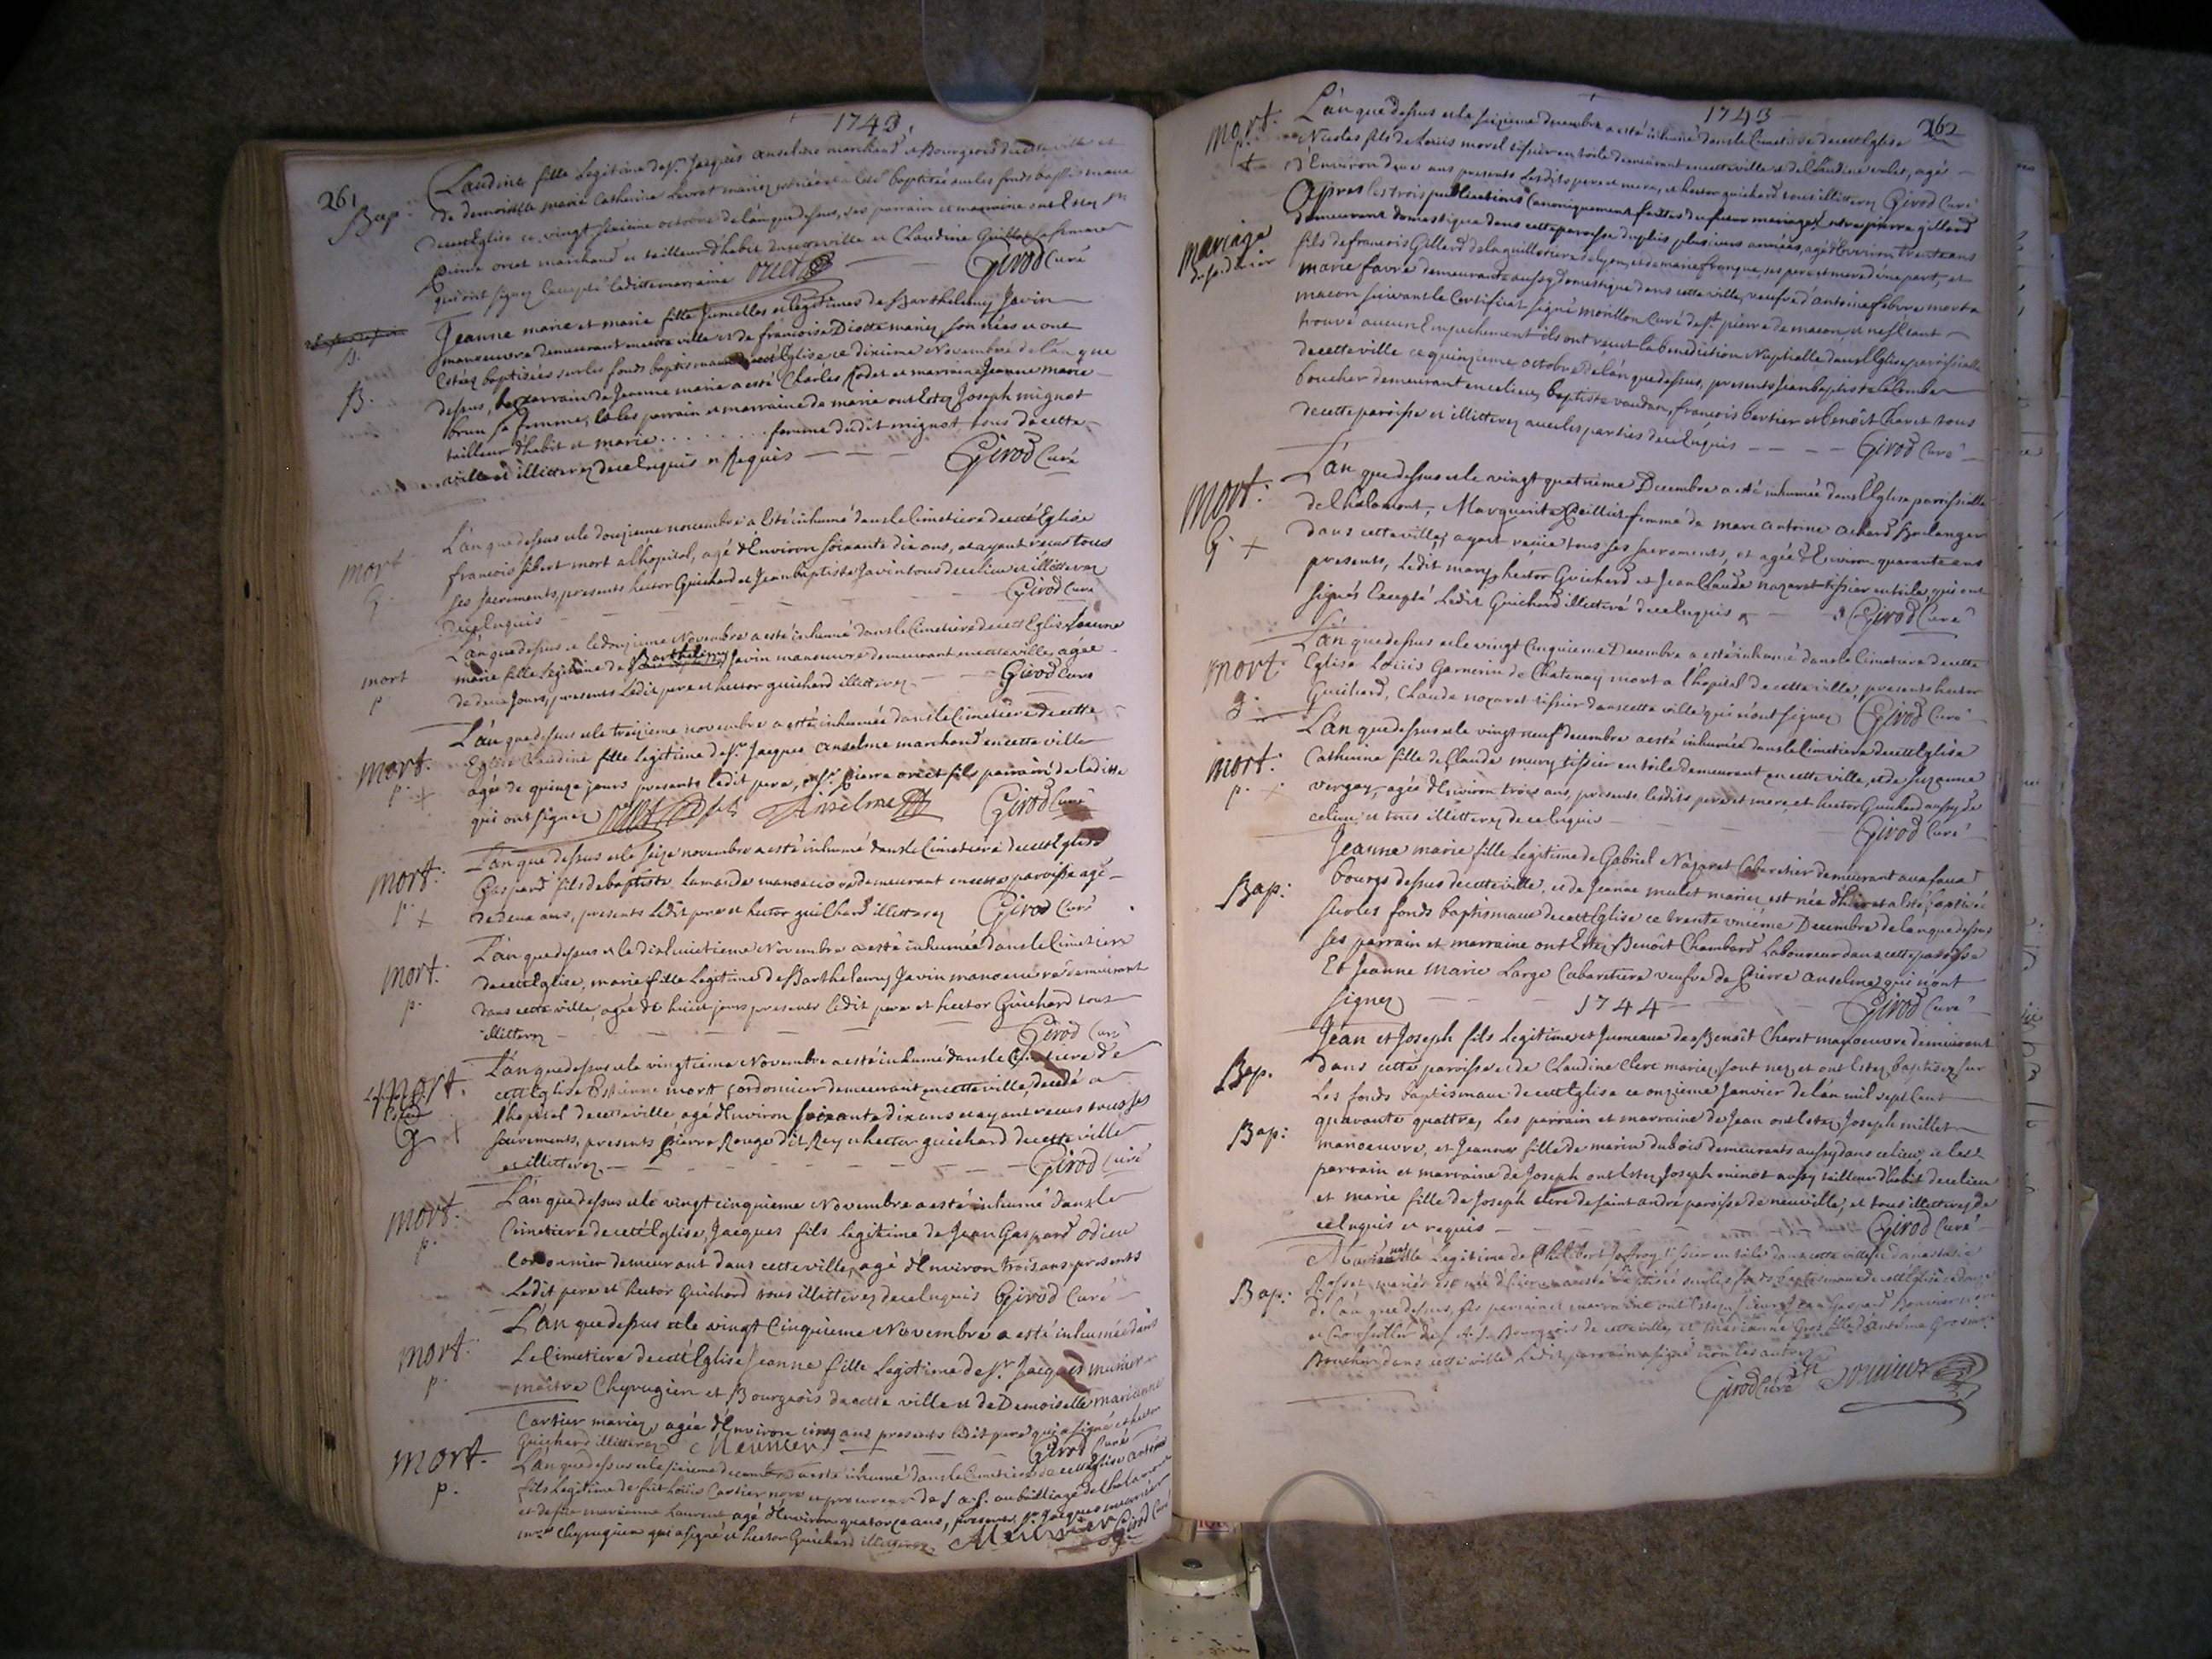 1743
261
Bap:
Claudine fille Legitime de sr. Jacques anselme marchand et Bourgeois de cette ville et
de demoiselle marie Catherine Livrat mariez est née et a esté baptisée sur les fonds baptismaux
de cett Eglise ce vingt octobre de l'an que dessus, ses parrain et marraine ont Estez sr
pierre oriet marchand et tailleur d'habit de cette ville et Claudine Guillot sa femme
qui ont signez Excepté laditte marraine oriet Girod Curé
B.
B.
Jeanne marie et marie fille Jumelles et legitimes de Barthelemy Javin
manoeuvre demeurant en cette ville et de francoise Diotte mariez, sont nées et ont
Estées baptisées sur les fonds baptismaux de cett Eglise ce dixieme Novembre de l'an que
dessus, parrain de Jeanne marie a esté Charles Rodet et marraine Jeanne marie
brun sa femme, les parrain et marraine de marie ont Estez Joseph mignot
tailleur d'habit et marie . . . . . . . . femme dudit mignot tous de cette
ville et illitterez de ce Enquis et Requis Girod Curé
mort
G.
L'an que dessus et le douzieme novembre a esté inhumé dans le Cimetiere de cett Eglise
francois sibert mort a l'hopital, agé d'Environ soixante dix ans, et ayant recus tous
ses sacrements, presents hector Guichard et Jean baptiste Javin tous de ce lieu et illitterez
de ce Enquis Girod Curé
mort
p.
L'an que dessus et le douzieme Novembre a esté inhumé dans le Cimetiere de cett Eglise Jeanne
marie fille Legitime de Barthelemy Javin manoeuvre demeurant en cette ville, agée
de deux Jours, presents Ledit pere et hector guichard illitterez Girod Curé
mort.
p. +
L'an que dessus et le treizieme novembre a esté inhumée dans le Cimetiere de cette
Eglise Claudine fille legitime de sr. Jacques anselme marchand en cette ville
agée de quinze jours presents ledit pere, et sr. Pierre oriet fils parrain de laditte
qui ont signez oriet fils Anselme Girod Curé
mort.
p. +
L'an que dessus et le seize novembre a esté inhumé dans le Cimetiere de cett Eglise
Gaspard fils de baptiste manoeuvre demeurant en cette paroisse agé
de deux ans, presents Ledit pere et hector guichard illitterez Girod Curé
mort.
p.
L'an que dessus et le dixhuictieme Novembre a esté inhumée dans le Cimetiere
de cett Eglise, marie fille Legitime de Barthelemy Javin manoeuvre demeurant
dans cette ville, agée de huict jours presents ledit pere et hector Guichard tous
illitterez Girod Curé
mort.
G +
L'an que dessus et le vingtieme Novembre a esté inhumé dans le Cimetiere de
cett Eglise Estienne mort cordonnier demeurant en cette ville, decedé a
l'hopital de cette ville agé d'Environ soixante dix ans et ayant recus tous ses
sacrements, presents Pierre Rouge dit Rey et hector guichard de cette ville
et illitterez Girod Curé
mort.
p.
L'an que dessus et le vingt cinquieme Novembre a esté inhumé dans le
Cimetiere de cett Eglise, Jacques fils legitime de Jean Gaspard odieu
cordonnier demeurant dans cette ville, agé d'Environ trois ans presents
Ledit pere et hector Guichard tous illitterez de ce Enquis Girod Curé
mort.
p.
L'an que dessus et le vingt Cinquieme Novembre a esté inhumée dans
Le Cimetiere de cett Eglise Jeanne fille Legitime de sr. Jacques munier
maitre Chyrugien et Bourgeois de cette ville et de Demoiselle marianne
Cartier mariez, agée d'Environ cinq ans presents ledit pere qui a signé et hector
Guichard illitterez Meunier Girod Curé
mort.
p.
L'an que dessus et le sixieme decembre a esté inhumé dans le Cimetiere de cett Eglise antoine
fils legitime de feu Loüis Cartier nore et procureur de s. a. s. au bailliage de Chalamont
et de füe marianne Laurent agé d'Environ quatorze ans, presents sr. Jacques meunier
mre Chyrugien qui a signé et hector Guichard illitterez Meunier Girod Curé
1743
262
Mort.
p.
+
L'an que dessus et le seizieme decembre a esté inhumé dans le Cimetiere de cett Eglise
Nicolas fils de Loüis morel tissier en toile demeurant en cette ville et de Claudine, agé
d'Environ deux ans presents Lesdits pere et mere, et hector guichard tous illitterez Girod Curé
mariage
Apres les trois publications Canoniquement faittes du futur mariage Entre pierre gillard
demeurant domestique dans cette paroisse depuis plusieurs années, agé d'Environ trente ans
fils de francois Gillard de la guillotiere de lyon, et de marie franque, ses pere et mere d'une part; et
marie favre demeurante aussy domestique dans cette ville, veufve d'antoine Lebvre mort a
macon suivant le Certificat signé morillon Curé de st pierre de macon, et ne s'Etant
trouvé aucun Empechement ils ont recut la benediction Nuptialle dans l'Eglise parrissialle
de cette ville ce quinzieme octobre de l'an que dessus, presents Jean baptiste laComba
boucher demeurant en ce lieu, baptiste vaudan, francois bertier et benoit Charet tous
de cette paroisse et illitterez avec les parties de ce Enquis Girod Curé
Mort:
G. +
L'an que dessus et le vingt quatrieme Decembre a esté inhumée dans l'Eglise parrissialle
de Chalamont, Marguerite femme de marc antoine achard Boulanger
dans cette ville, ayant reçüe tous ses sacrements, et agée d'Environ quarante ans
presents, Ledit mary, hector Guichard et Jean Claude nazaret tissier en toile, qui ont
signés Excepté Ledit Guichard illitteré de ce Enquis Girod Curé
mort.
g.
L'an que dessus et le vingt Cinquieme Decembre a esté inhumé dans le Cimetiere de cette
Eglise Loüis Garnerin de Chatenay mort a l'hopital de cette ville, presents hector
Guichard, Claude nozaret tissier dans cette ville qui n'ont signez Girod Curé
mort.
p.
L'an que dessus et le vingt neuf decembre a esté inhumée dans le Cimetiere de cett Eglise
Catherine fille de Claude mury tissier en toile demeurant en cette ville, et de Suzanne
vergay, agée d'Environ trois ans, presents, lesdits pere et mere, et hector Guichard aussy de
ce lieu et tous illitterez de ce Enquis Girod Curé
Bap:
Jeanne marie fille Legitime de Gabriel Nazaret Cabaretier demeurant au faux
bourgs dessus de cette ville, et de Jeanne mulet mariez est née d'hier et a Esté baptisée
sur les fonds baptismaux de cett Eglise ce trente unieme Decembre de l'an que dessus
ses parrain et marraine ont Estez Benoit Chambard Laboureur dans cette paroisse
Et Jeanne Marie Large Cabaretiere veufve de Pierre anselme qui n'ont
signez Girod Curé
1744
Bap.
Bap:
Jean et Joseph fils legitime et Jumeaux de Benoit Charet manoeuvre demeurant
dans cette paroisse et de Claudine Clerc mariez, sont nez et ont Estez baptisez sur
Les fonds baptismaux de cett Eglise ce onzieme Janvier de l'an mil sept Cent
quarante quattre, Les parrain et marraine de Jean ont Estez Joseph millet
manoeuvre, et Jeanne fille de marin dubois demeurants aussy dans ce lieu, et les
parrain et marraine de Joseph ont Estez Joseph minot aussy tailleur d'habit de ce lieu
et marie fille de Joseph clere de saint andré paroisse de neuville, et tous illitterez de
ce Enquis et requis Girod Curé
Bap:
fille Legitime de Philibert Joffroy tissier en toile dans cette ville et d'anastasie
Rosset mariés est née d'hier et a esté baptisée sur les fonds baptismaux de cett Eglise
de l'an que dessus, ses parrain et marraine ont Estez sieur Jean Gaspard Bouvier
et Conseiller de s. A. s. Bourgeois de cette ville, et marianne Gros fille d'anselme Gros
Boucher dans cette ville Ledit parrain a signé non les autres
Girod Curé Bouvier